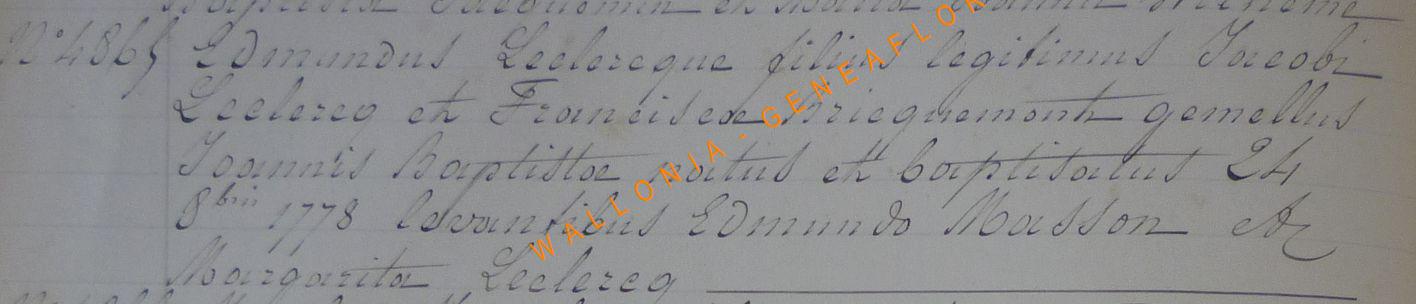 Baptista Jacquemin et Maria
N° 4865 Edmundus Leclercque filius legitimus Jacobi
Leclercq et Francisca Briequemont gemellus
Joannis Baptista natus et baptisatus 24
8bris 1778 levantibus Edmundo Masson et
Margarita Leclercq
WALLONIA - GENEAFLOR